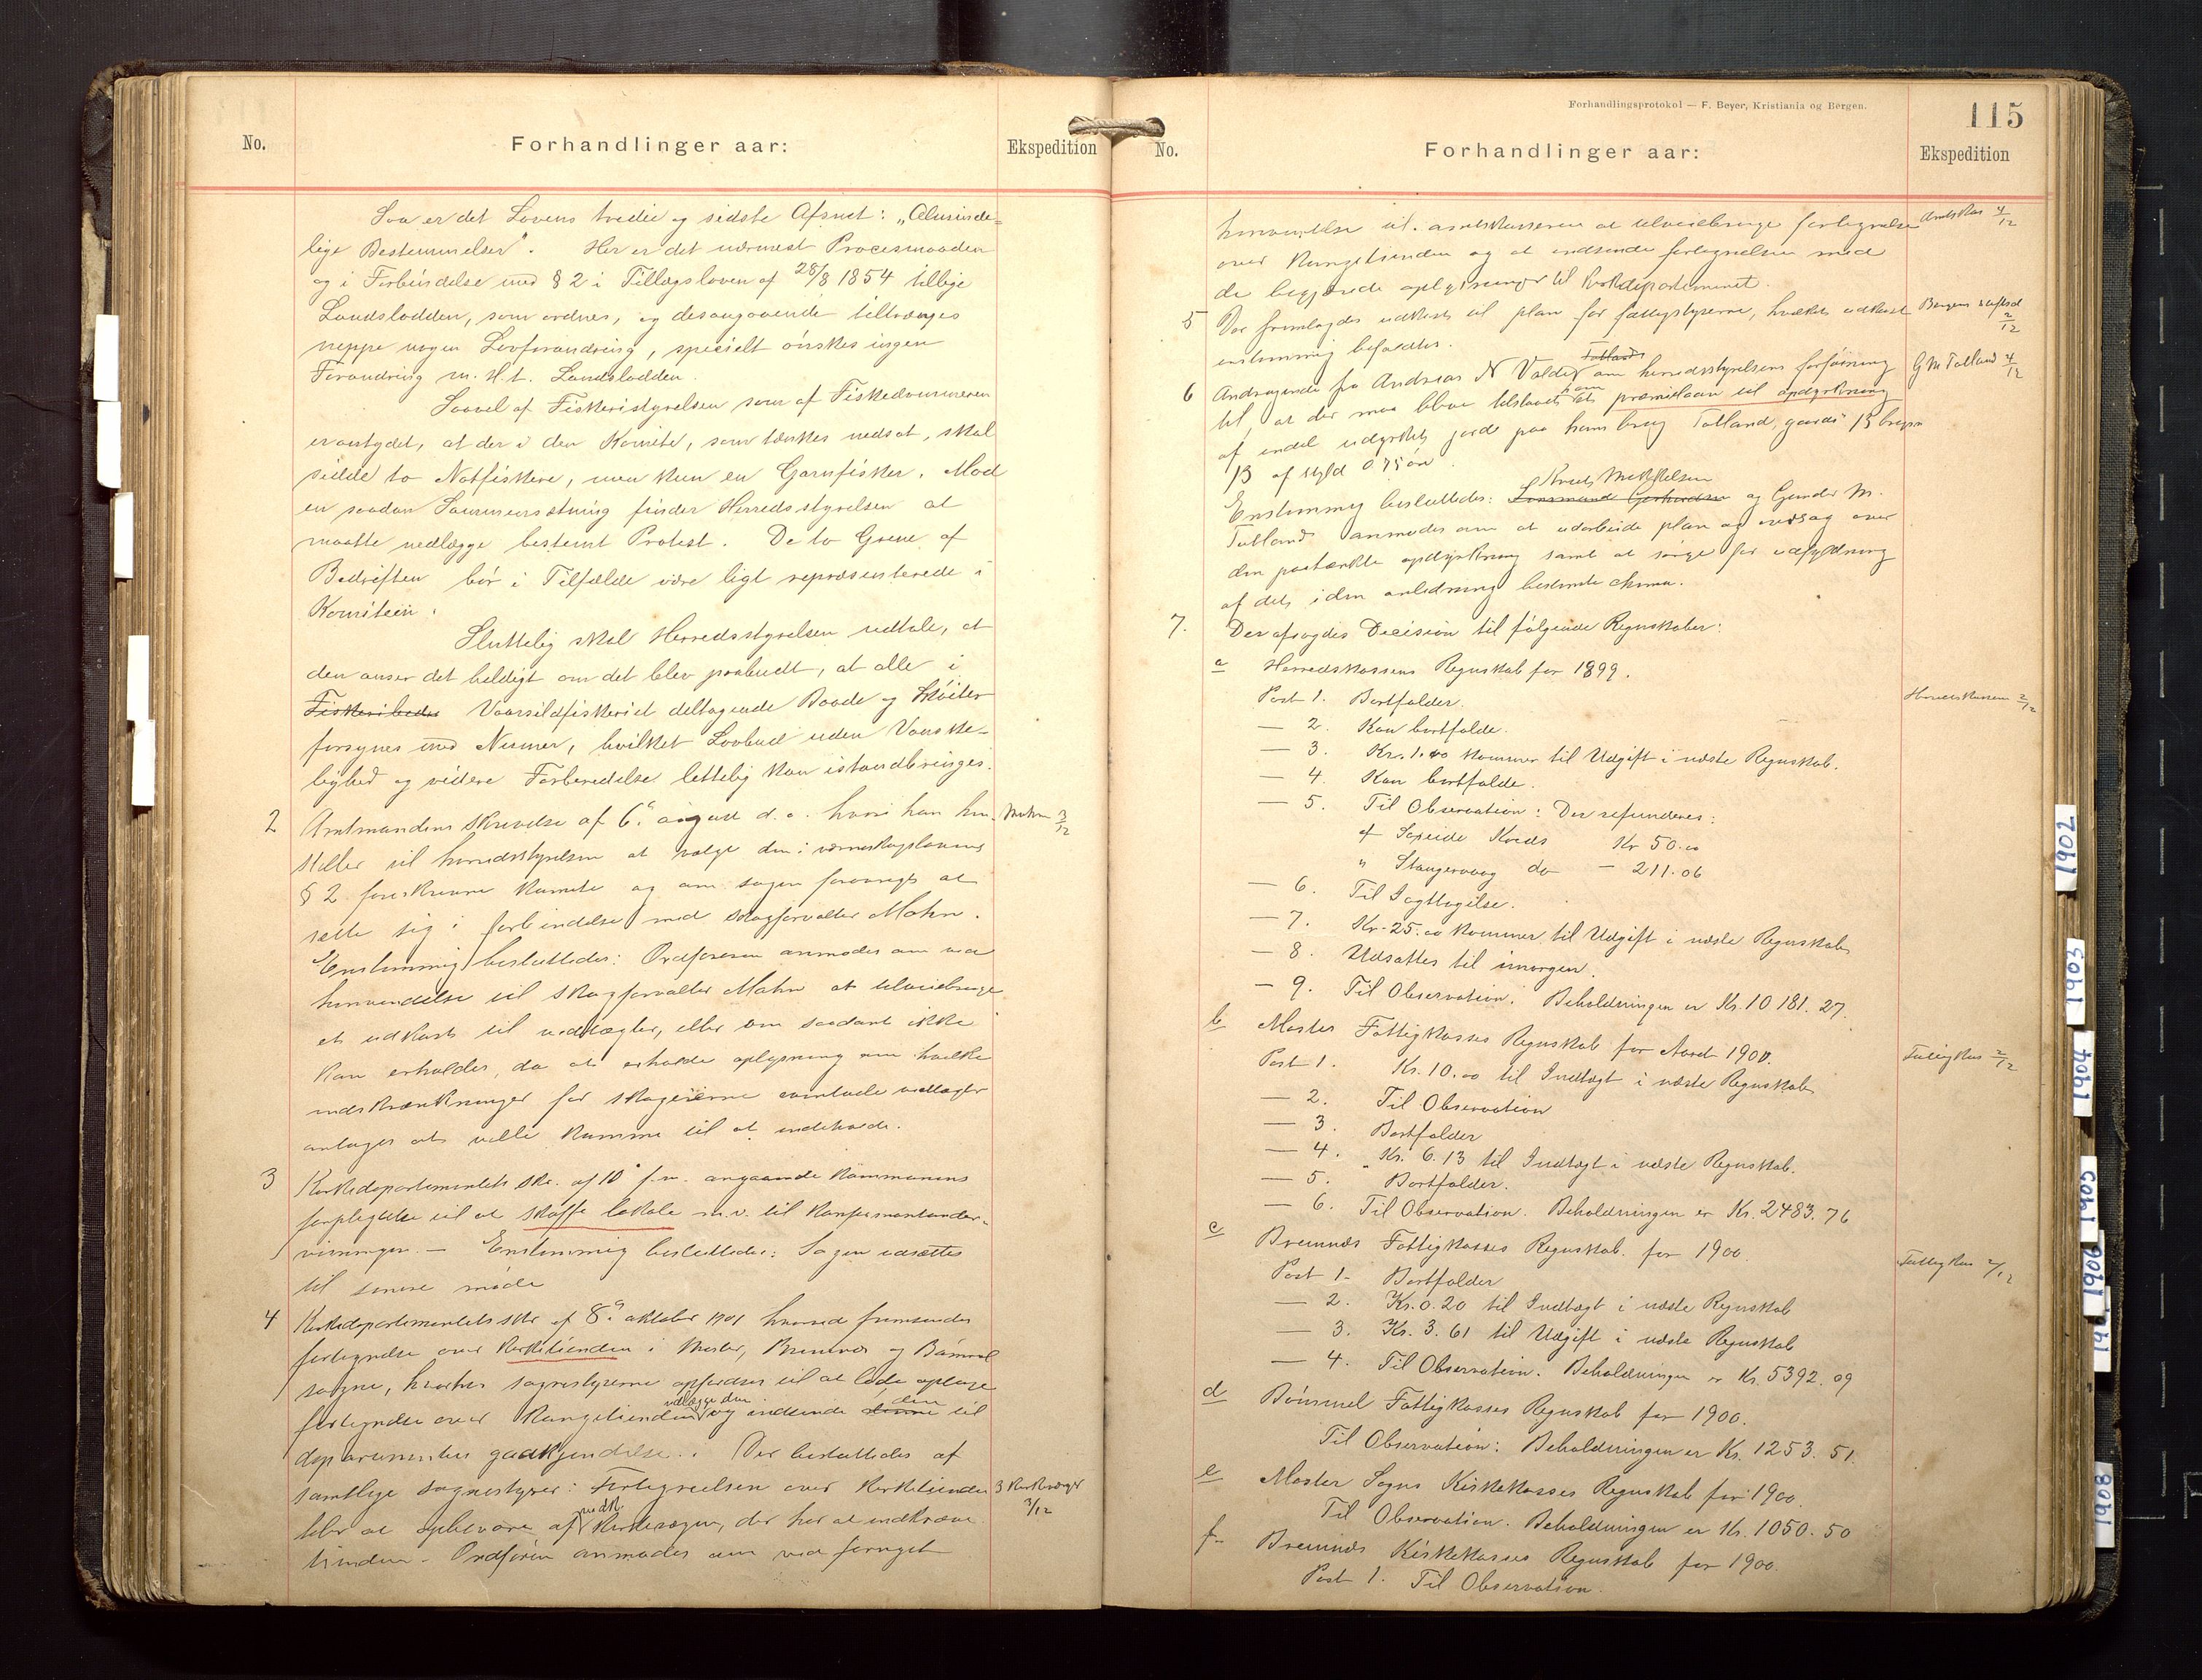 No.
Forhandlinger aar:
Ekspedition
Saa er det Lovens tredie og sidste Afsnit: „Alminde-
lige Bestemmelser". Her er det nærmest Procesmaaden
og i Forbindelse med § 2 i Tillægsloven af 28/8 1854 tillige
Landslodden, som ordnes, og desangaaende tiltrænges
neppe nogen Lovforandring, specielt ønskes ingen
Forandring m. H. t. Landslodden.
Saavel af Fiskeristyrelsen som af Fiskedommeren
er antydet, at der i den Komite, som tænkes nedsat, skal
sidde to Notfiskere, men kun en Garnfisker. Mod
en saadan Sammensætning finder Herredsstyrelsen at
maatte nedlægge bestemt Protest. De to Grene af
Bedriften bør i Tilfælde være ligt repræsenterede i
Komiteen.
Sluttelig skal Herredsstyrelsen udtale, at
den anser det heldigt om det blev paabudt, at alle i
Vaarsildfiskeriet deltagende Baade og Skøiter
forsynes med Numer, hvilket Lovbud uden Vanske-
lighed og videre Forberedelse lettelig kan istandbringes.
2 Amtmandens skrivelse af 6te august d. a. hvori han hen- Mohn 3/12
stiller til herredsstyrelsen at vælge den i værneskoglovens
§ 2 foreskrevne komite og om sagen forøvrigt at
sætte sig i forbindelse med skogforvalter Mohn.
Enstemmig besluttedes: Ordføreren anmodes om ved
henvendelse til skogforvalter Mohn at tilveiebringe
et udkast til vedtægter, eller om saadant ikke
kan erholdes, da at erholde oplysning om hvilke
indskrænkninger for skogeierne eventuele vedtægter
antages at ville komme til at indeholde.
3 Kirkedepartementets skr. af 10 f. m. angaaende kommunens
forpligtelse til at skaffe lokale m. v. til konfirmantunder-
visningen. — Enstemmig besluttedes: Sagen udsættes
til senere møde
4 Kirkedepartementets skr af 8de oktober 1901 hvorved fremsendes
fortegnelse over Kirketienden i Moster, Bremnes og Bømmel
sogne, hvorhos sognestyrerne opfordres til at lade optage
fortegnelse over Kongetienden vedlægge den og indsende den til
departementets godkjendelse. Der besluttedes af
samtlige sognestyrer: Fortegnelsen over Kirketienden 3 Kirkeværger 3/12
blir at opbevare af vedk. Kirkeværger, der har at indkræve
tienden. Ordføren anmodes om ved fornyet
Forhandlingsprotokol — F. Beyer, Kristiania og Bergen.
115
No.
Forhandlinger aar:
Ekspedition
henvendelse til amtskassereren at tilveiebringe fortegnelse Amtskas 4/12
over Kongetienden og at indsende fortegnelsen med
de begjærede oplysninger til Kirkedepartementet.
5 Der fremlagdes udkast til plan for fattigstyrerne, hvilket udkast Bergens stiftsd 2/12
enstemmig besluttes.
6 Andragende fra Andreas N Valde Tolland om herredsstyrelsens forføining G M Tolland 4/12
til, at der maa blive tilstaaet ham et præmielaan til opdyrkning
af endel udyrket jord paa hans brug Tolland, gaards 13 brugsn
13 af skyld 0.75 øre.
Enstemmig besluttedes: Knut Mikkelsen og Gunder M.
Tolland anmodes om at udarbeide plan og overslag over
den paatænkte opdyrkning samt at sørge for udfyldning
af det i den anledning bestemte skema.
7. Der afsagdes Decision til følgende Regnskaber:
a Herredskassens Regnskab for 1899.
Post 1. Bortfalder. Herredskassen 2/12
— 2. Kan bortfalde.
— 3. Kr. 1.40 kommer til Udgift i næste Regnskab.
— 4. Kan bortfalde.
— 5. Til Observation: Der refunderes:
af Kreds Kr 50.00
" Stangervaag do — 211.06
— 6. Til Iagttagelse.
— 7. Kr. 25.00 kommer til Udgift i næste Regnskab
— 8. Udsættes til imorgen.
— 9. Til Observation. Beholdningen er Kr. 10 181. 27.
b Moster Fattigkasses Regnskab for Aaret 1900. Fattigkas 2/12
Post 1. Kr. 10.00 til Indtægt i næste Regnskab
— 2. Til Observation
— 3. Bortfalder
— 4. Kr. 6.13 til Indtægt i næste Regnskab.
— 5. Bortfalder.
— 6. Til Observation. Beholdningen er Kr. 2483. 76
c Bremnes Fattigkasses Regnskab. for 1900 Fattigkas 2/12
Post 1. Bortfalder
— 2. Kr. 0.20 til Indtægt i næste Regnskab
— 3. Kr. 3.61 til Udgift i næste Regnskab
— 4. Til Observation. Beholdningen er Kr. 5392.09
d Bømmel Fattigkasses Regnskab for 1900.
Til Observation: Beholdningen er Kr. 1253. 51.
e Moster Sogns Kirkekasses Regnskab for 1900.
Til Observation. Beholdningen er Kr. 1050.50
f. Bremnes Kirkekasses Regnskab for 1900.
Post 1. Til Observation.
1902
1903
1904
1905
1906
1908